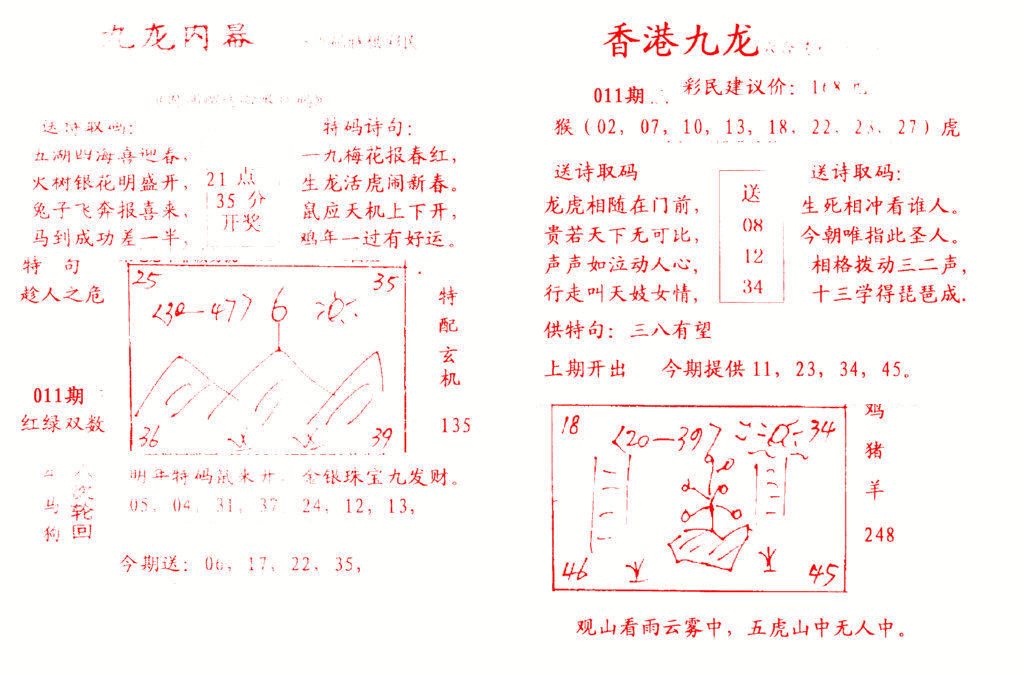 九龙内幕
送诗取码：
五湖四海喜迎春，
火树银花明盛开，
兔子飞奔报喜来，
马到成功差一半，
21 点
35 分
开奖
特码诗句：
一九梅花报春红，
生龙活虎闹新春。
鼠应天机上下开，
鸡年一过有好运。
特 句
趁人之危
011期
红绿双数
25
35
<30—477> 6
36
39
特
配
玄
机
135
马
狗
轮
回
明年特码鼠来开，金银珠宝九发财。
05，04，31，37，24，12，13，
今期送：06，17，22，35，
香港九龙
011期
彩民建议价：168
猴（02，07，10，13，18，22，23，27）虎
送诗取码
龙虎相随在门前，
贵若天下无可比，
声声如泣动人心，
行走叫天妓女情，
送
08
12
34
送诗取码：
生死相冲看谁人。
今朝唯指此圣人。
相格拨动三二声，
十三学得琵琶成.
供特句：三八有望
上期开出 今期提供 11，23，34，45。
18
<20—39>
34
46
45
鸡
猪
羊
248
观山看雨云雾中，五虎山中无人中。